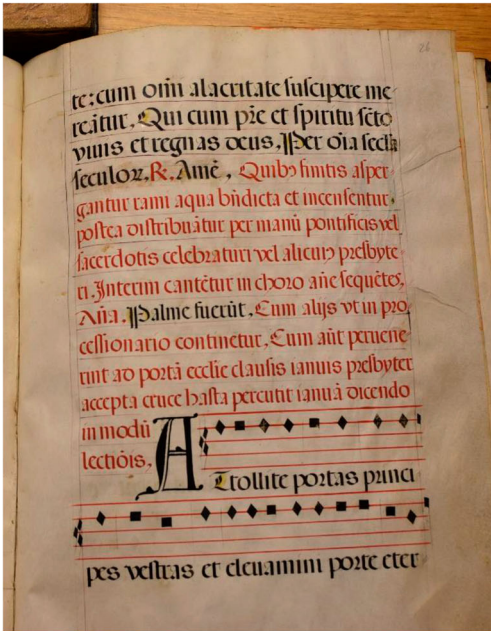 26
te: cum om̄i alacritate suscipere me
reātur. Qui cum pr̄e et spiritu sc̄to
viuis et regnas deus. Per oīa secl̄a
seculoꝝ. ℟. Amē, Quibꝰ finitis asper
gantur rami aqua bn̄dicta et incensentur,
postea distribuātur per manū pontificis vel
sacerdotis celebraturi vel alicuiꝰ presbyte
ri. Interim cantētur in choro an̄e sequētes,
An̄a. Palme fuerūt, Cum alijs vt in pro
cessionario continetur, Cum aūt peruene
rint ad portā ecclie clausis ianuis presbyter
accepta cruce hasta percutit ianuā dicendo
in modū
lectiōis.
Attollite portas princi
pes vestras et eleuamini porte eter